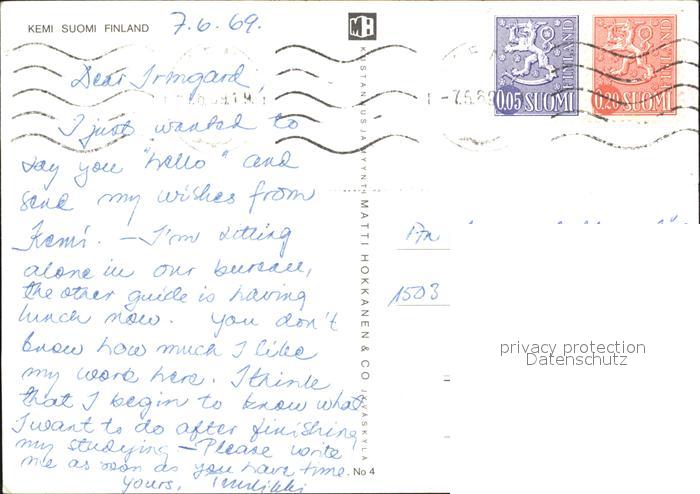 KEMI SUOMI FINLAND
7.6.69.
MH
0.05 SUOMI
FINLAND
0.20 SUOMI
FINLAND
Dear Irmgard,
I just wanted to
say you "hello" and
send my wishes from
Kemi. - I'm sitting
alone in our bureau,
the other guide is having
lunch now. You don't
know how much I like
my work here. I think
that I begin to know what
I want to do after finishing
my studying - Please write
me as soon as you have time.
Yours,
KUSTANTUS JA MYYNTI MATTI HOKKANEN & CO JYVÄSKYLÄ
No 4
1503
privacy protection
Datenschutz